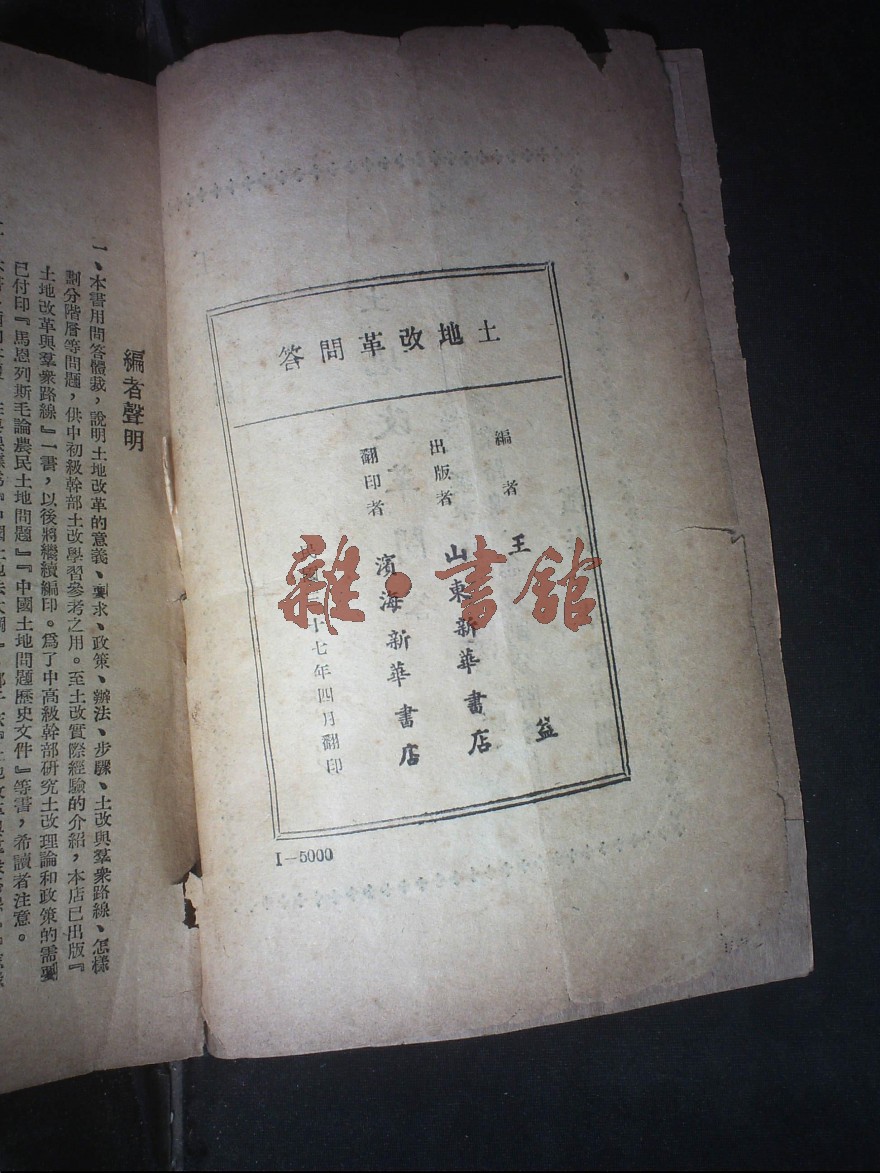 土地改革問答
編者 王益
出版者 山東新華書店
翻印者 濱海新華書店
十七年四月翻印
I—5000
雜·書館
編者聲明
一、本書用問答體裁，說明土地改革的意義、要求、政策、辦法、步驟、土改與羣衆路線、怎樣
劃分階層等問題，供中初級幹部土改學習參考之用。至土改實際經驗的介紹，本店已出版『
土地改革與羣衆路線』一書，以後將繼續編印。爲了中高級幹部研究土改理論和政策的需要
已付印『馬恩列斯毛論農民土地問題』『中國土地問題歷史文件』等書，希讀者注意。